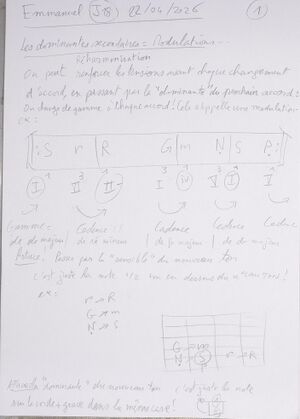 Emmanuel J98 22/04/2026 1
Les dominantes secondaires = Modulations...
Réharmonisation
On peut renforcer les tensions avant chaque changement
d'accord, en passant par la "dominante" du prochain accord :
On change de gamme à chaque accord ! Cela s'appelle une modulation
ex :
S r R G m N S P
I VI II I IV V I V
Gamme = Cadence Cadence Cadence Cadence
de do majeur de ré mineur de majeur de do majeur
Astuce : Passer par la "sensible" du nouveau ton
c'est juste la note 1/2 ton en dessous du nouveau ton !
ex :
r → R
G → m
N → S
G → m
N → S r → R
la "dominante" du nouveau ton c'est juste la note
sur la corde + grave dans la même case !